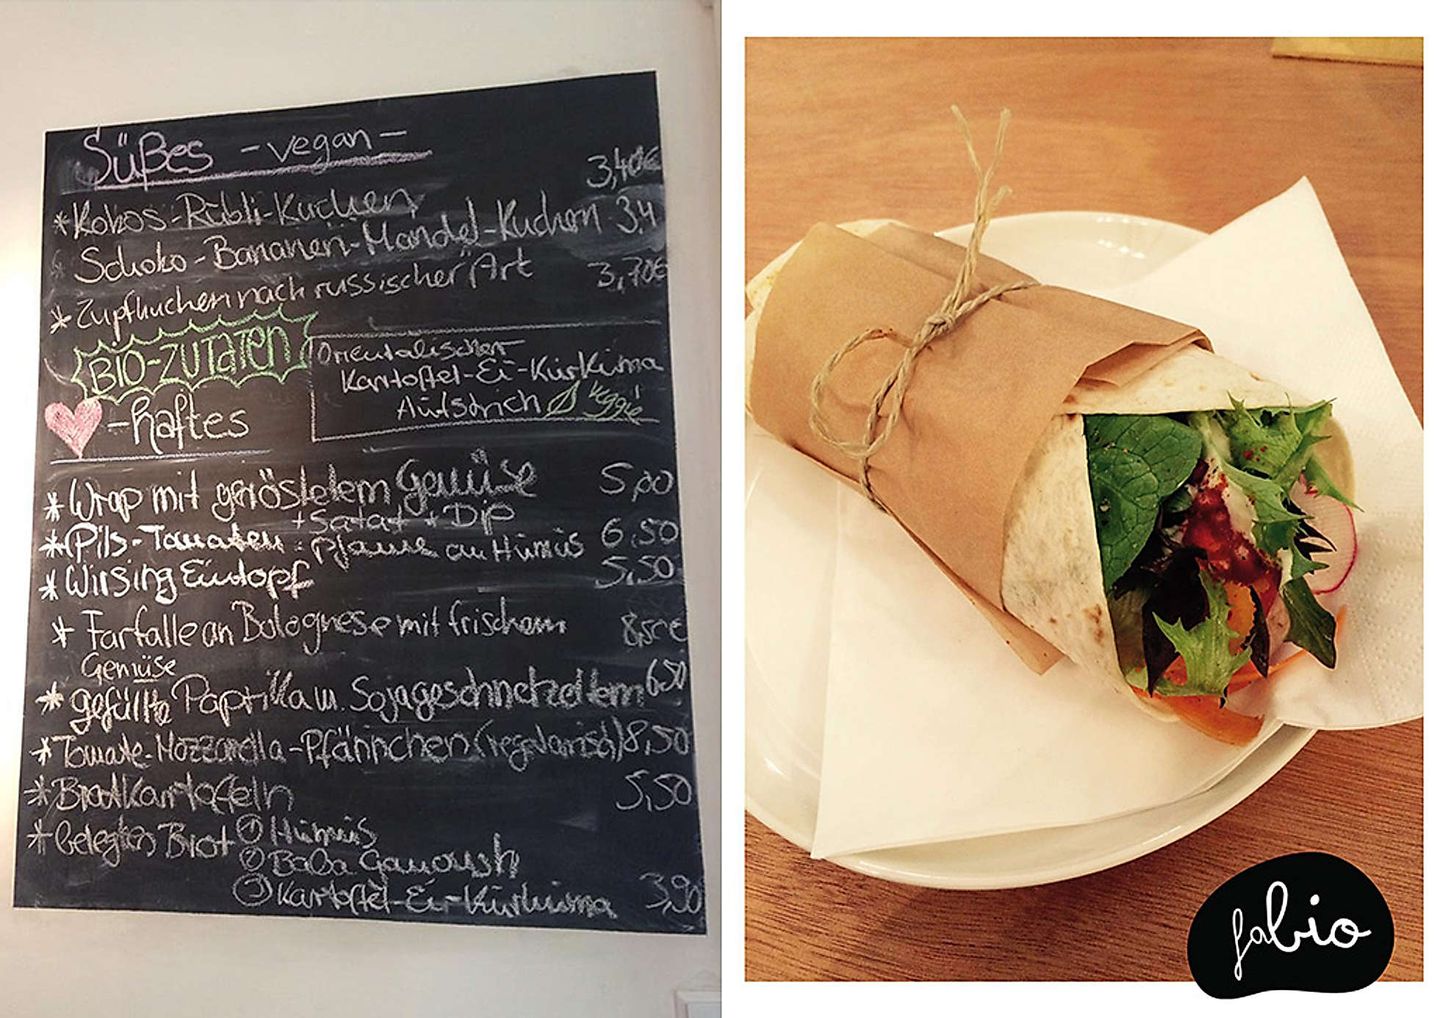 Süßes - vegan -
3,40€
* Kokos-Rübli-Kuchen
Schoko-Bananen-Mandel-Kuchen 3,4
* Zupfkuchen nach russischer Art 3,70€
BIO-ZUTATEN
Orientalischer
Kartoffel-Ei-Kurkuma
Aufstrich Veggie
-haftes
* Wrap mit geröstetem Gemüse 5,00
+ Salat + Dip
* Pilz-Tomaten-Pfanne an Humus 6,50
* Wirsing Eintopf 5,50
* Farfalle an Bolognese mit frischem 8,50€
Gemüse
* gefüllte Paprika m. Sojageschnetzeltem 6,50
* Tomate-Mozzarella-Pfännchen (vegetarisch) 8,50
* Bratkartoffeln 5,50
* belegtes Brot ① Humus
② Baba Ganoush
③ Kartoffel-Ei-Kurkuma 3,90
fabio